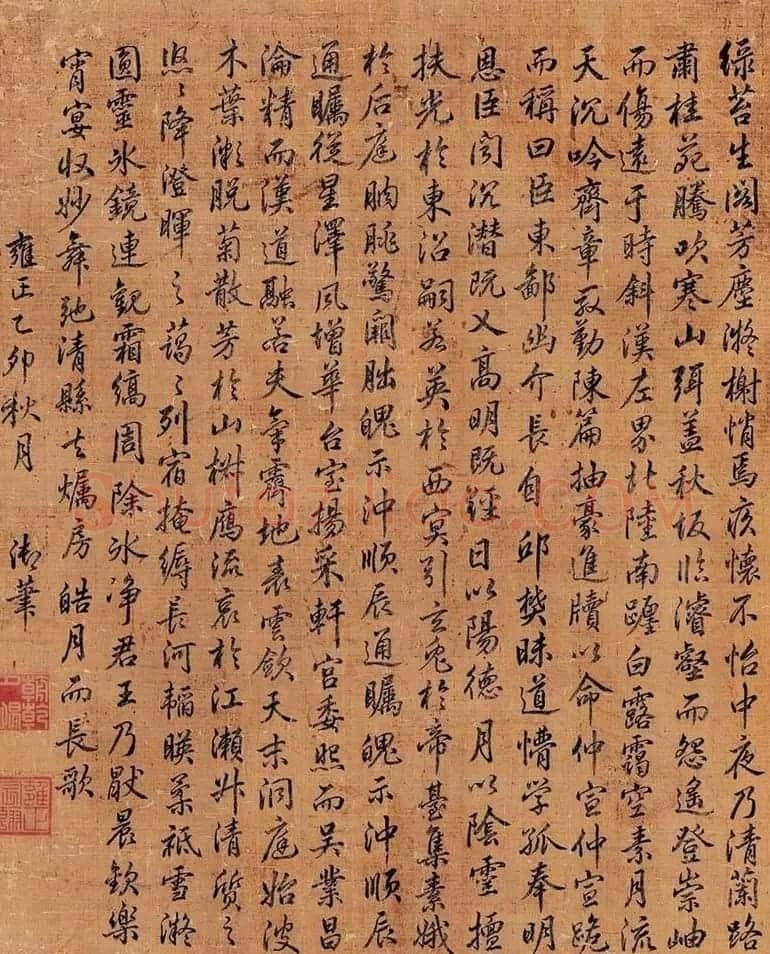 綠苔生閣芳塵凝榭悄焉疚懷不怡中夜乃清蘭路
肅桂苑騰吹寒山弭蓋秋坂臨濬壑而怨遙登崇岫
而傷遠于時斜漢左界北陸南躔白露靄空素月流
天沉吟齊章殷勤陳篇抽豪進牘以命仲宣仲宣跪
而稱曰臣東鄙幽介長自邱樊昧道懵學孤奉明
恩臣聞沉潛既义高明既經日以陽德月以陰靈擅
扶光於東沼嗣若英於西冥引玄兔於帝臺集素娥
於后庭朒朓驚闕朏魄示沖順辰通矚魄示沖順辰
通矚從星澤風增華台室揚采軒宮委照而吳業昌
淪精而漢道融若夫氣霽地表雲斂天末洞庭始波
木葉漸脫菊散芳於山樹鴈流哀於江瀨升清質之
悠〻降澄暉之藹〻列宿掩縟長河韜暎柔祇雪凝
圓靈冰鏡連觀霜縞周除冰净君王乃猒晨歡樂
宵宴收妙舞弛清縣去燭房皓月而長歌
雍正乙卯秋月 御筆